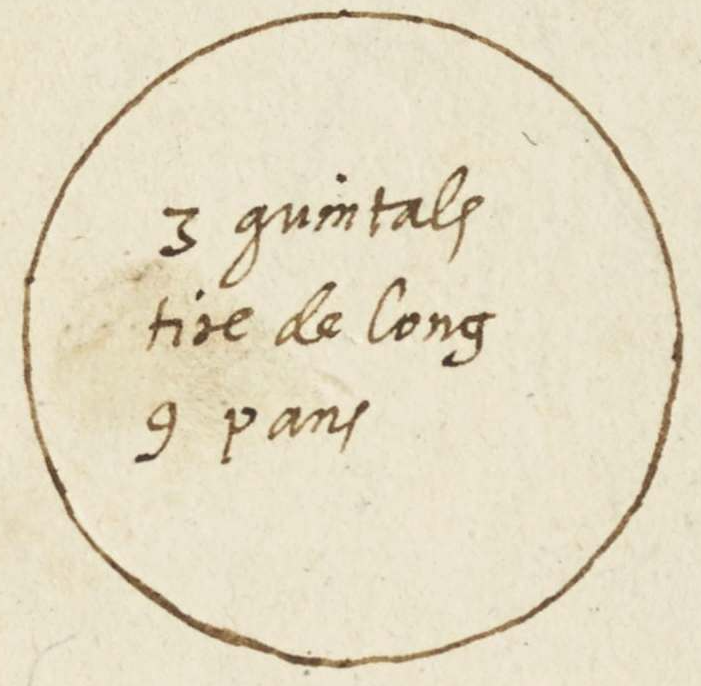 3 quintals
tire de long
9 pans